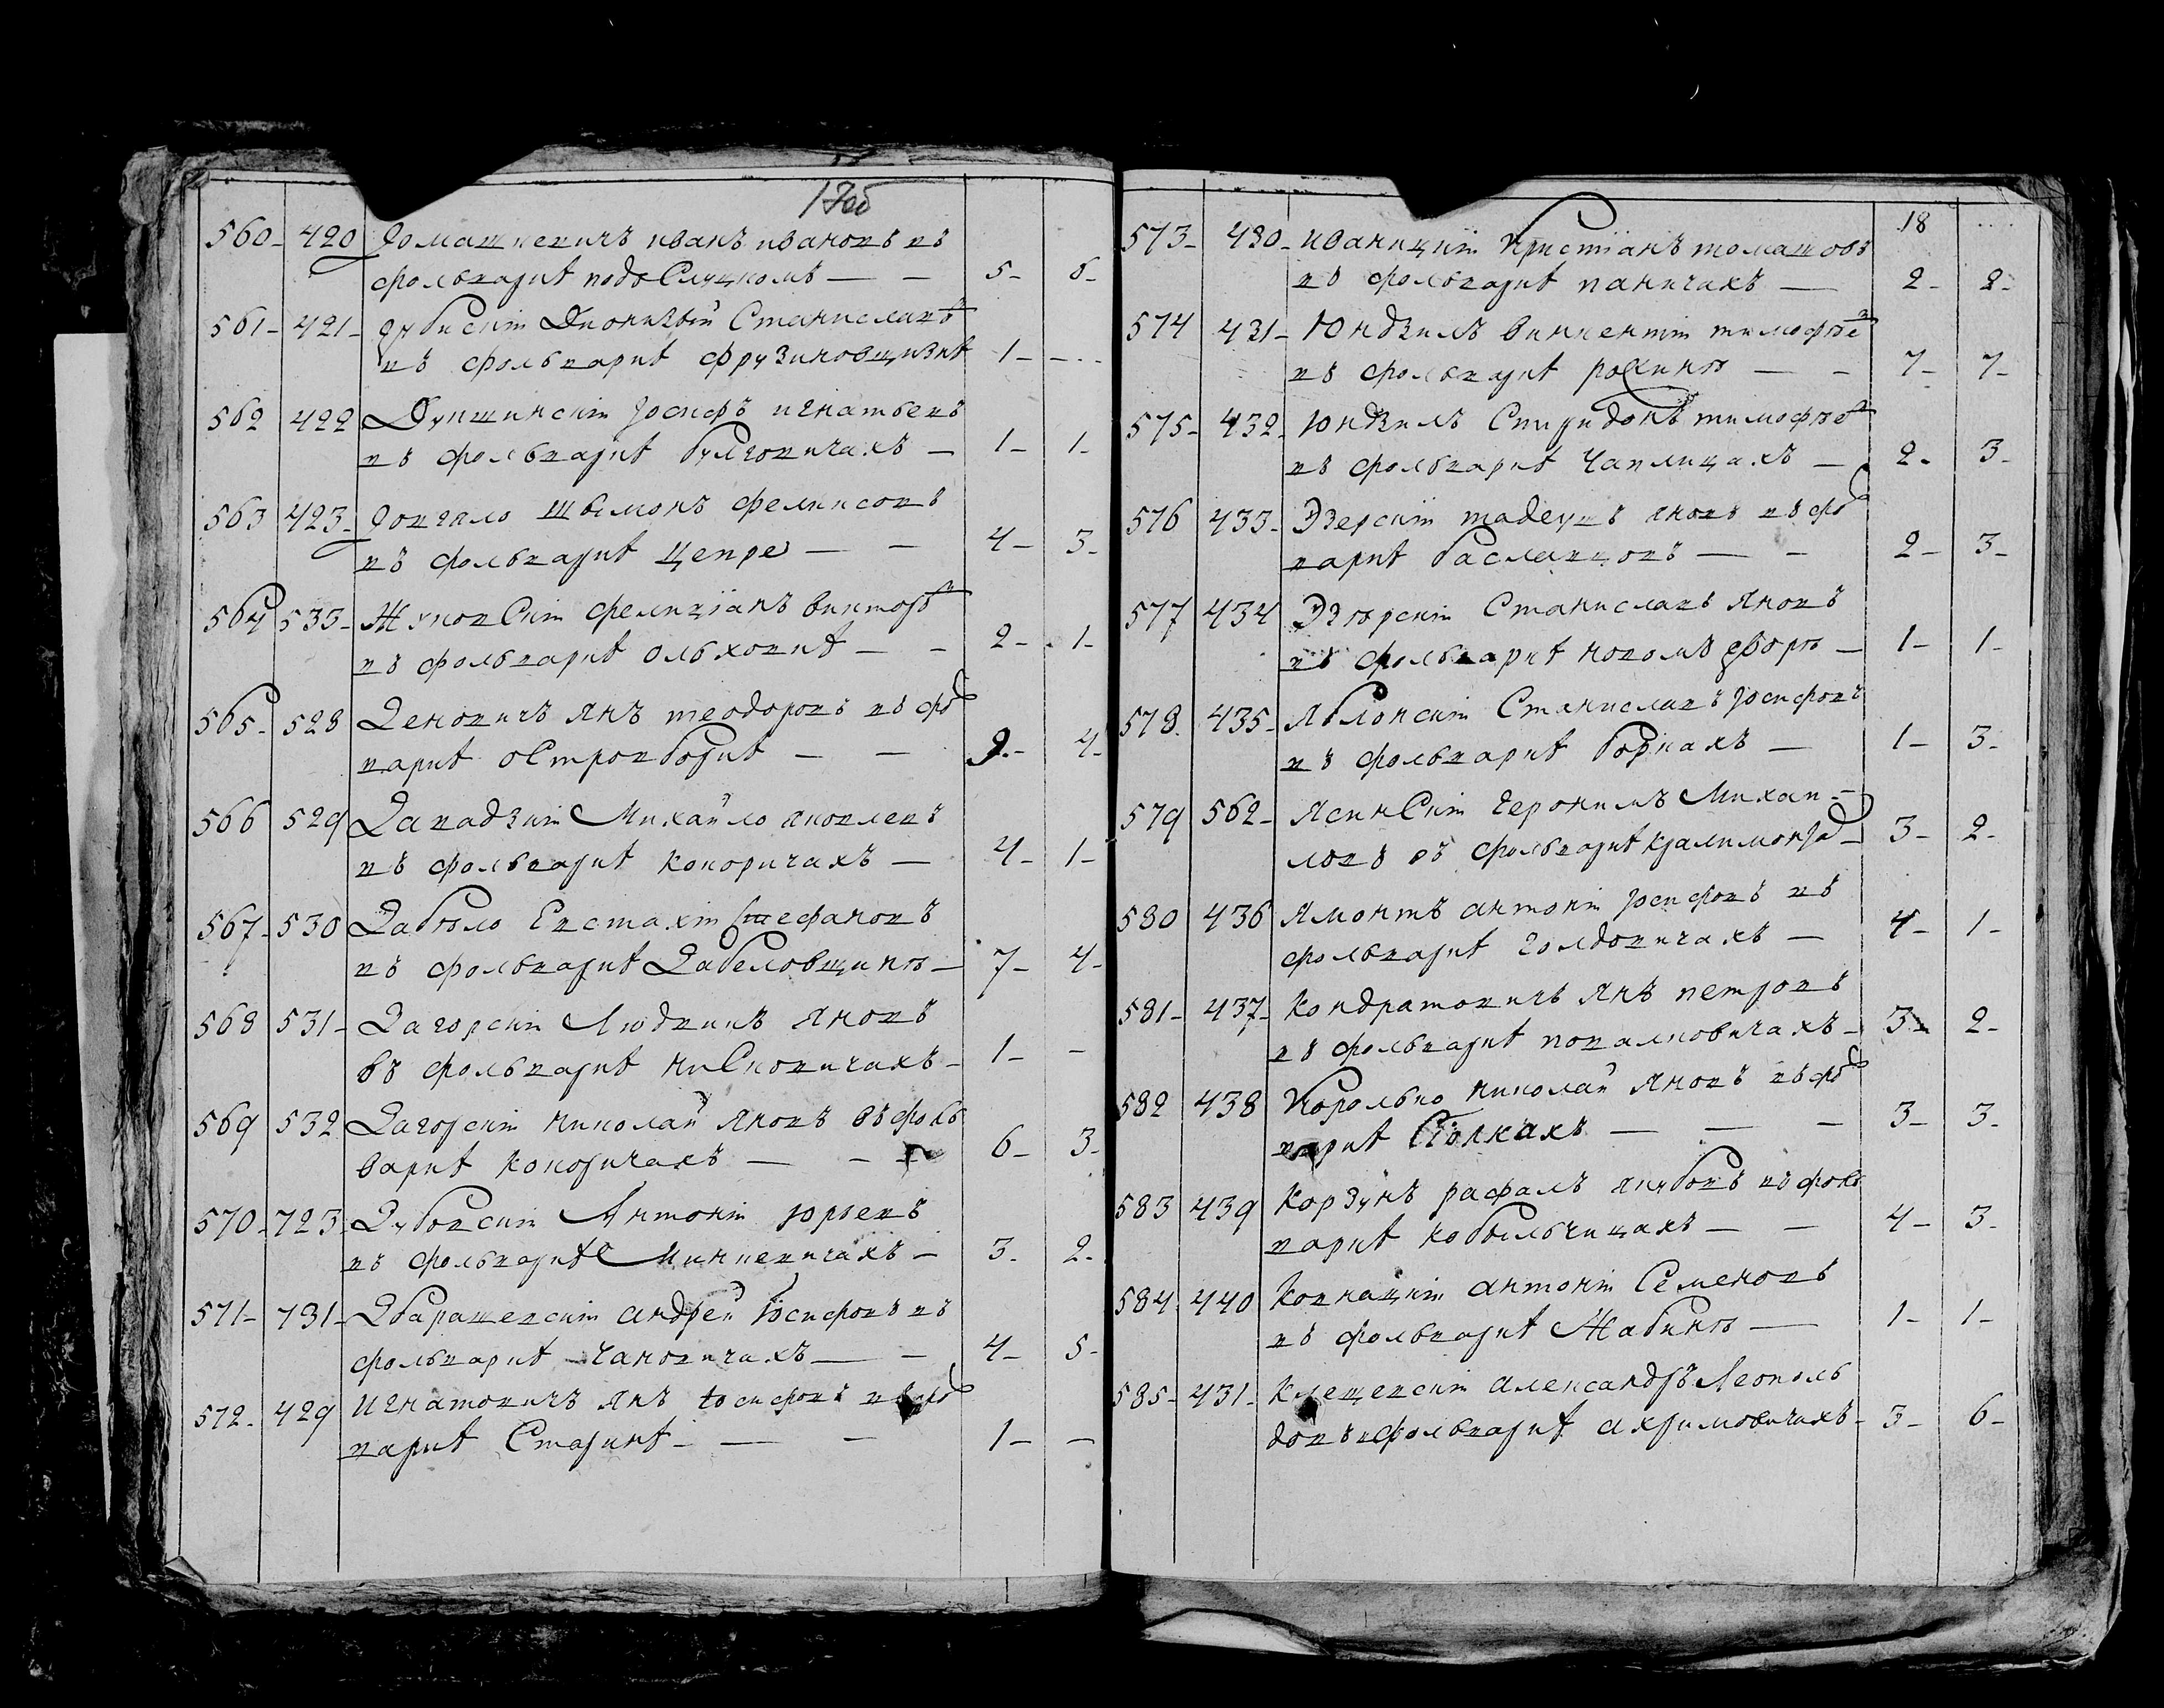 17об
560- 420 Домашневичъ иванъ ивановъ въ
фольваркѣ подъ Слуцкомъ — — 5- 5-
561- 421- дубискій Дионизый Станиславъ
въ фольваркѣ фрузиновщизнѣ 1- - ..
562 422 Душинскій Іосифъ игнатьевъ
въ фольваркѣ булговичахъ — 1- 1-
563 423- довгяло шымонъ феликсовъ
въ фольваркѣ цепре — — 4- 3-
564 533- Жуковскій фелиціанъ виктор
въ фольваркѣ ольховкѣ — — 2- 1-
565- 528 Зеновичъ янъ теодоровъ въ фо
варкѣ островборкѣ — — 9- 4-
566 529 Завадзкій Михайло яковлевъ
въ фольваркѣ конюричахъ — 4- 1-
567- 530 Забѣло Евстахій Стефановъ
въ фольваркѣ Забеловщинѣ — 7- 4-
568 531- Загорскій Людвикъ яновъ
въ фольваркѣ — 1- -
569 532 Загорскій николай яновъ въ фоль
варкѣ коноричахъ — — 6- 3-
570- 723 Зубовскій Антоній юрьевъ
въ фольваркѣ Минкевичахъ — 3. 2-
571- 731- Збарашевскій андрей Іосифовъ въ
фольваркѣ Чановичахъ — — 4- 5-
572- 429 Игнатовичъ янъ Іосифовъ въ фо
варкѣ Старинѣ - — — 1- -
18
573- 430- иваницкій Християнъ томашовъ
въ фольваркѣ паничахъ — 2- 2-
574 431- Юндзилъ викентій тимофѣе
въ фольваркѣ рохинѣ — - 7- 7-
575- 432- Юндзилъ Спиридонъ тимофѣе
въ фольваркѣ Чаплицахъ — 2. 3-
576 433- Эзерскій тадеушъ яновъ въ фо
варкѣ басланцовъ — - 2- 3-
577 434 Эзѣрскій Станиславъ яновъ
въ фольваркѣ новомъ дворѣ — 1- 1-
578. 435- яблонскій Станиславъ Іосифовъ
въ фольваркѣ боркахъ — 1- 3-
579 562- ясинскій геронимъ Михаи-
ловъ въ фольваркѣ — 3- 2-
580 436 ямонтъ антоній Іосифовъ въ
фольваркѣ голдовичахъ — 4- 1-
581- 437- кондратовичъ янъ петровъ
въ фольваркѣ покалновичахъ - 3- 2-
582 438 королько николай яновъ въ фо
варкѣ — — - 3- 3-
583 439 корзунъ рафалъ якубовъ въ фоль
варкѣ кобыльчицахъ — — 4- 3-
584. 440 ковнацкій антоній Семеновъ
въ фольваркѣ Жабинѣ — 1- 1-
585- 431- клещевскій александръ Леополь
довъ въ фольваркѣ ахримовичахъ - 3- 6-